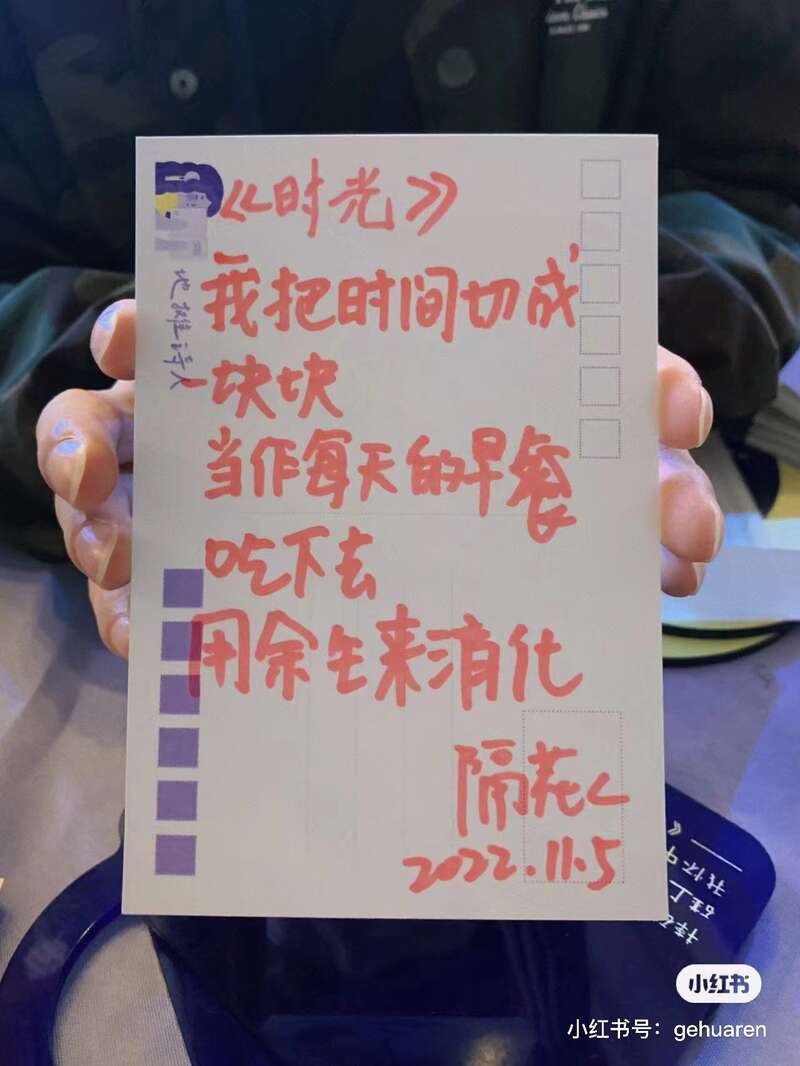 《时光》
我把时间切成
一块块
当作每天的早餐
吃下去
用余生来消化
隔花人
2022.11.5
地摊诗人
《
我怀中
小红书
小红书号：gehuaren